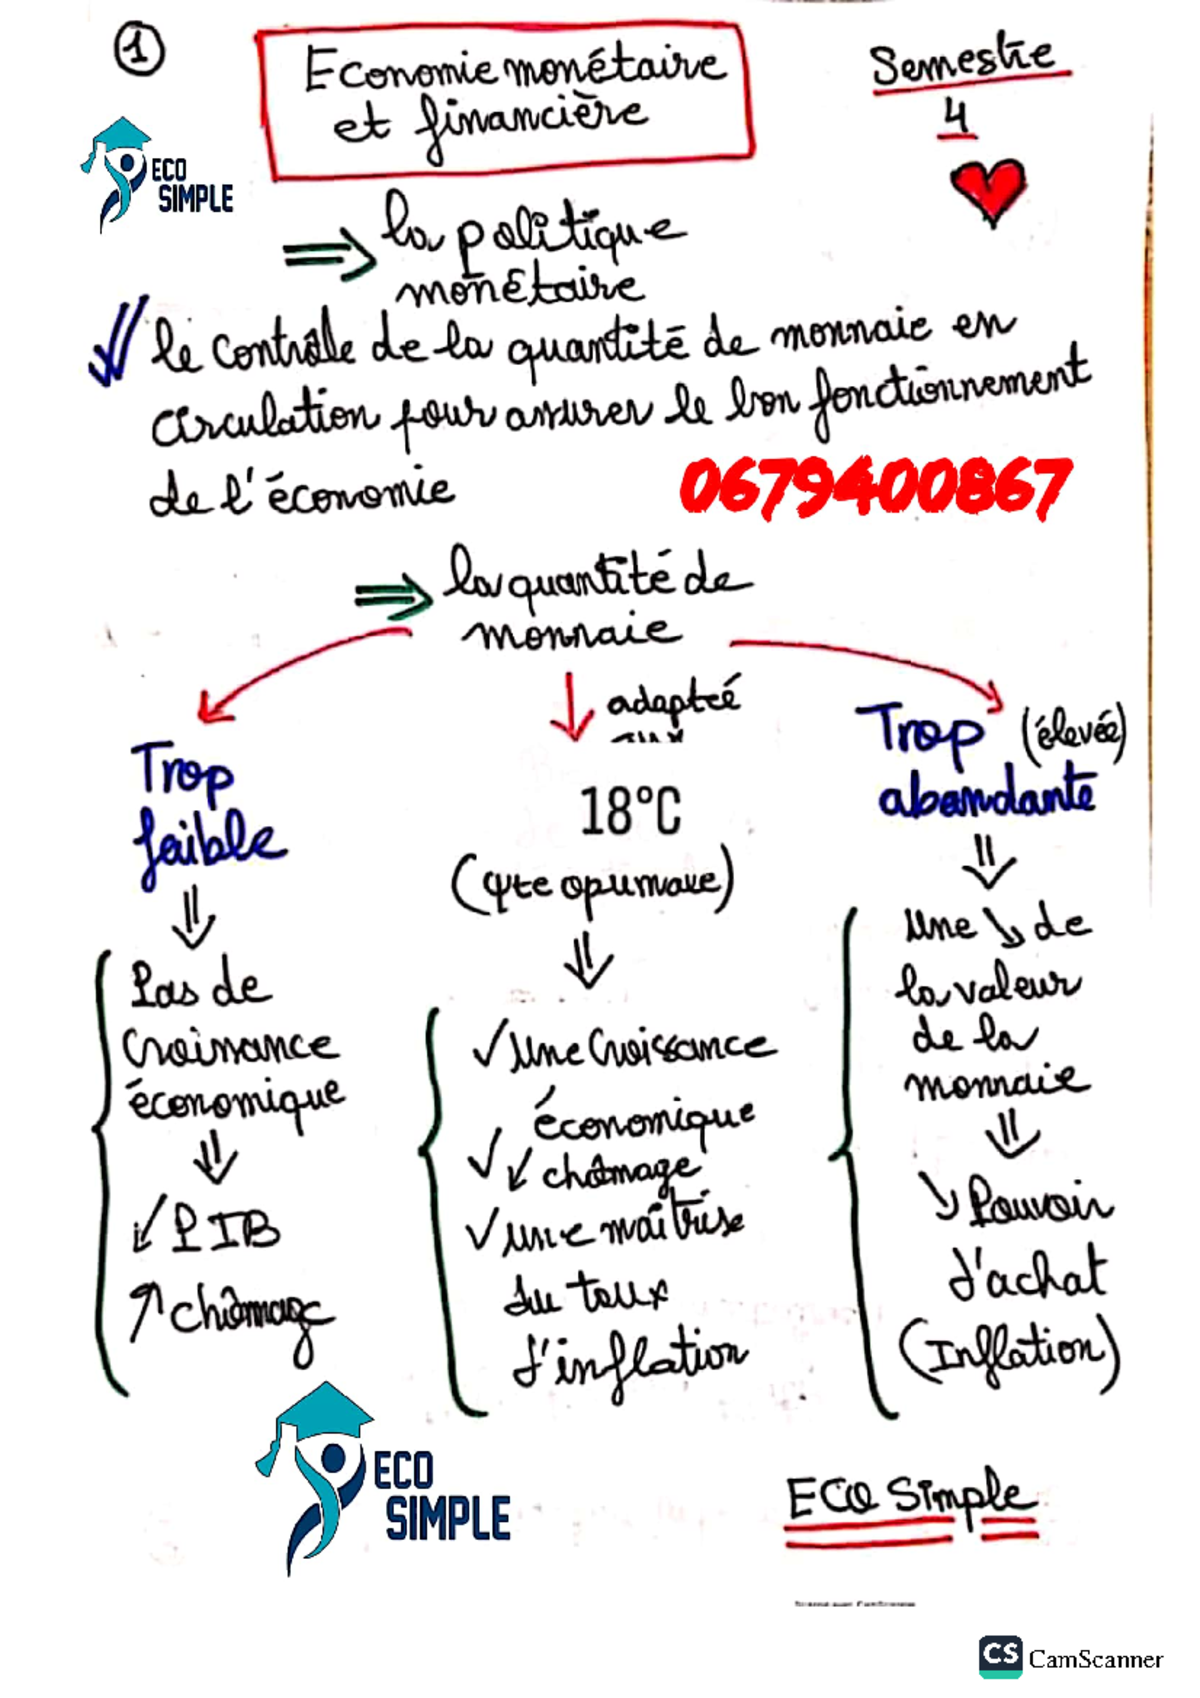 1
Economie monétaire
et financière
Semestre
4
ECO
SIMPLE
⇒ la politique
monétaire
le contrôle de la quantité de monnaie en
circulation pour assurer le bon fonctionnement
de l'économie
0679400867
⇒ la quantité de
monnaie
adaptée
Trop
faible
18°C
(Qte optimale)
Trop (élevée)
abondante
⇓
Pas de
croissance
économique
⇓
↙ PIB
↗ chômage
⇓
✓ Une Croissance
économique
✓ ↙ chômage
✓ une maîtrise
du taux
d'inflation
⇓
Une ↘ de
la valeur
de la
monnaie
⇓
↘ Pouvoir
d'achat
(Inflation)
ECO
SIMPLE
ECO Simple
CS CamScanner